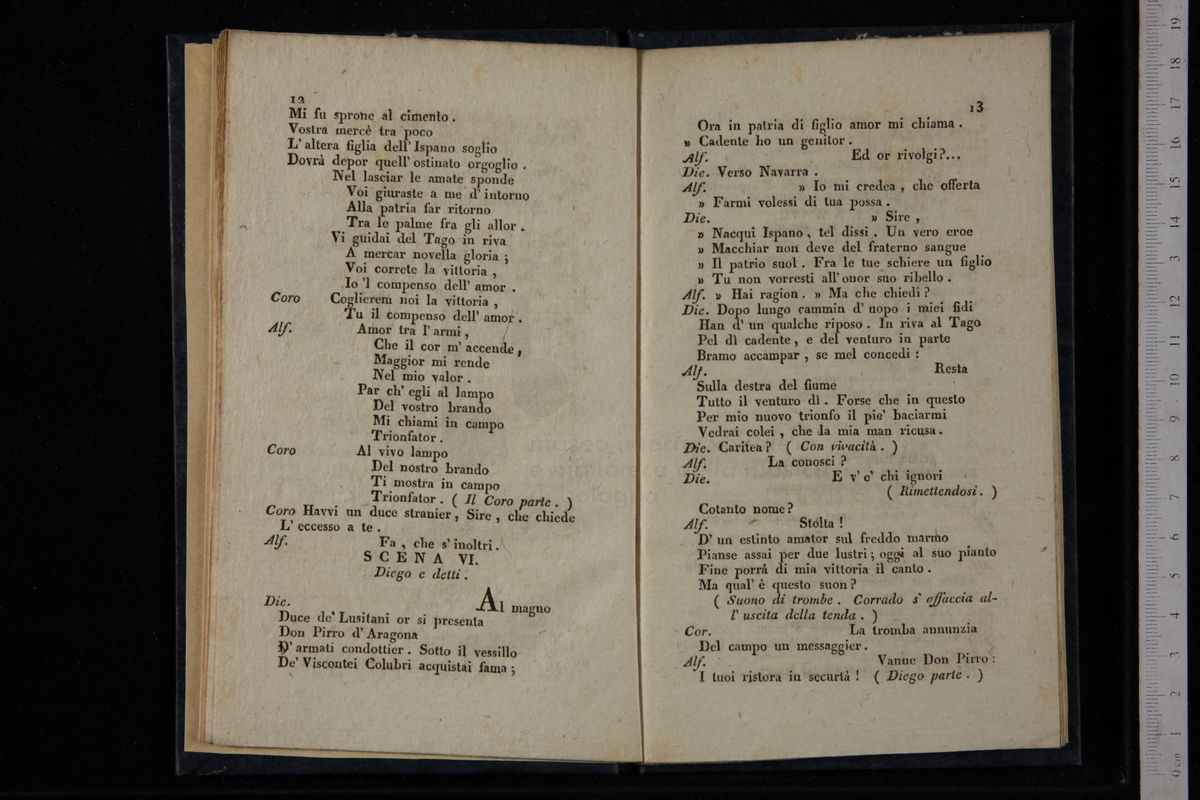 12
Mi fu sprone al cimento .
Vostra mercè tra poco
L' altera figlia dell' Ispano soglio
Dovrà depor quell' ostinato orgoglio .
Nel lasciar le amate sponde
Voi giuraste a me d' intorno
Alla patria far ritorno
Tra le palme fra gli allor .
Vi guidai del Tago in riva
A mercar novella gloria ;
Voi correte la vittoria ,
Io 'l compenso dell' amor .
Coro Coglierem noi la vittoria ,
Tu il compenso dell' amor .
Alf. Amor tra l' armi ,
Che il cor m' accende ,
Maggior mi rende
Nel mio valor .
Par ch' egli al lampo
Del vostro brando
Mi chiami in campo
Trionfator .
Coro Al vivo lampo
Del nostro brando
Ti mostra in campo
Trionfator . ( Il Coro parte . )
Coro Havvi un duce stranier , Sire , che chiede
L' eccesso a te .
Alf. Fa , che s' inoltri .
SCENA VI.
Diego e detti .
Die. Al magno
Duce de' Lusitani or si presenta
Don Pirro d' Aragona
D' armati condottier . Sotto il vessillo
De' Viscontei Colubri acquistai fama ;
13
Ora in patria di figlio amor mi chiama .
» Cadente ho un genitor .
Alf. Ed or rivolgi ?...
Die. Verso Navarra .
Alf. » Io mi credea , che offerta
» Farmi volessi di tua possa .
Die. » Sire ,
» Nacqui Ispano , tel dissi . Un vero eroe
» Macchiar non deve del fraterno sangue
» Il patrio suol . Fra le tue schiere un figlio
» Tu non vorresti all' onor suo ribello .
Alf. » Hai ragion . » Ma che chiedi ?
Die. Dopo lungo cammin d' uopo i miei fidi
Han d' un qualche riposo . In riva al Tago
Pel dì cadente , e del venturo in parte
Bramo accampar , se mel concedi :
Alf. Resta
Sulla destra del fiume
Tutto il venturo dì . Forse che in questo
Per mio nuovo trionfo il pie' baciarmi
Vedrai colei , che la mia man ricusa .
Die. Caritea ? ( Con vivacità . )
Alf. La conosci ?
Die. E v' e' chi ignori
( Rimettendosi . )
Cotanto nome ?
Alf. Stolta !
D' un estinto amator sul freddo marmo
Pianse assai per due lustri ; oggi al suo pianto
Fine porrà di mia vittoria il canto .
Ma qual' è questo suon ?
( Suono di trombe . Corrado s' affaccia al-
l' uscita della tenda . )
Cor. La tromba annunzia
Del campo un messaggier .
Alf. Vanne Don Pirro :
I tuoi ristora in securtà ! ( Diego parte . )